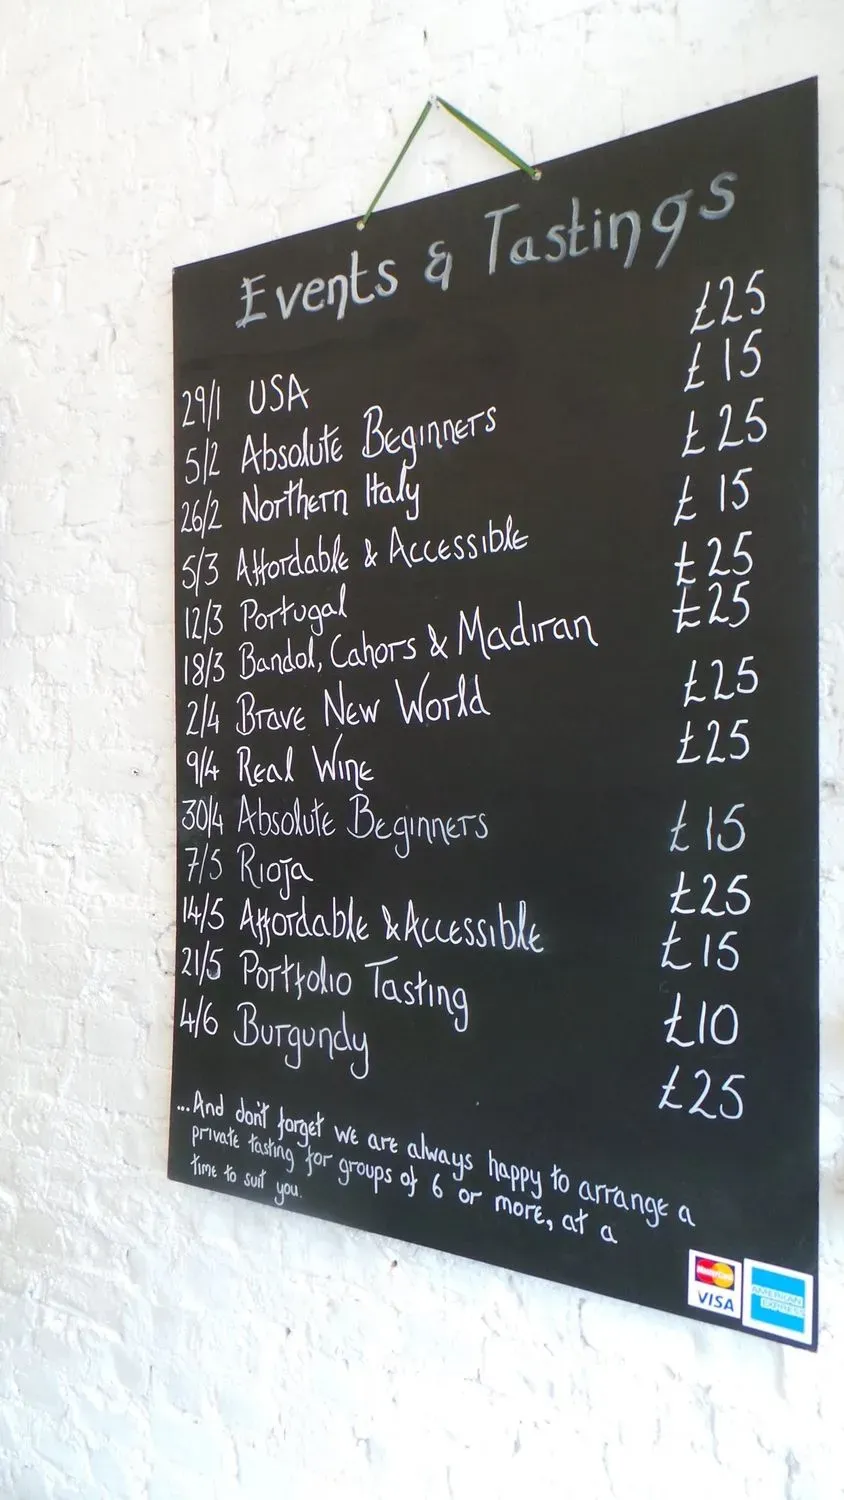 Events & Tastings
29/1 USA £25
5/2 Absolute Beginners £15
26/2 Northern Italy £25
5/3 Affordable & Accessible £15
12/3 Portugal £25
18/3 Bandol, Cahors & Madiran £25
2/4 Brave New World £25
9/4 Real Wine £25
30/4 Absolute Beginners £15
7/5 Rioja £25
14/5 Affordable & Accessible £15
21/5 Portfolio Tasting £10
4/6 Burgundy £25
...And don't forget we are always happy to arrange a
private tasting for groups of 6 or more, at a
time to suit you.
MasterCard
VISA
AMERICAN
EXPRESS